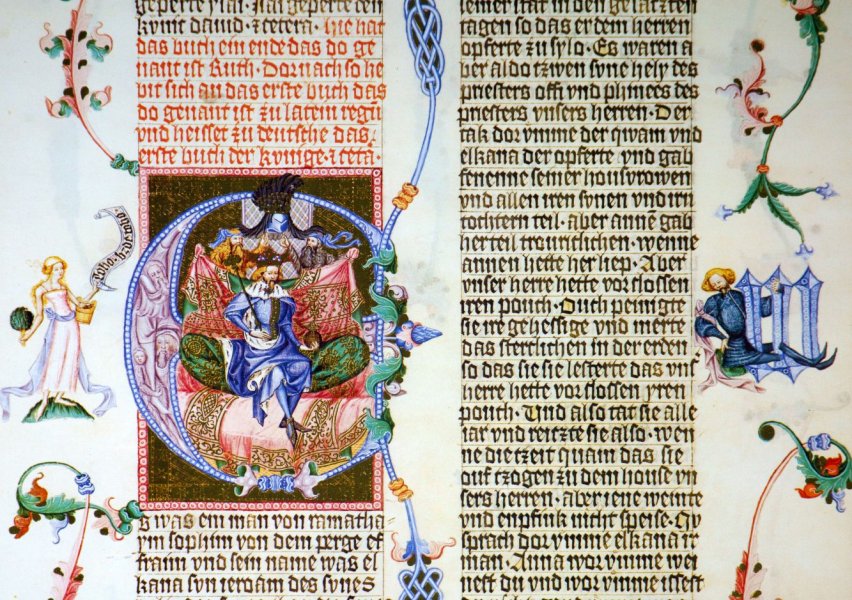 kvnit dauid · ⁊ cetera · Hie hat
das buch ein ende das do ge
nant ist Ruth · Dornach so he
bit sich an das erste buch das
do genant ist zu latein regū
vnd heisset zu deutsche das
erste buch der kvnige · ⁊ cetā ·
S was ein man von ramatha
ym sophim von dem perge ef
fraim vnd sein name was el
kana svn ieroām des svnes
tagen so das er dem herren
opferte zu sylo · Es waren a
ber aldo tzwen svne hely des
priesters offi vnd phinees des
priesters vnsers herren · Der
tak dor vmme der qwam vnd
elkana der opferte vnd gab
fenenne seiner housvrowen
vnd allen iren svnen vnd irn
tochtern teil · aber annē gab
her teil trouriclichen · wenne
annen hette her liep · Aber
vnser herre hette vorslossen
iren pouch · Ouch peinigte
sie ire gehessige vnd merte
das sterclichen in der erden
so das sie sie lesterte das vnser
herre hette vorslossen yren
pouch · Und also tat sie alle
iar vnd reitzte sie also · wen
ne die tzeit quam das sie
ouf tzogen zu dem house vn
sers herren · aber iene weinte
vnd enpfink nicht speise · Sy
sprach dor vmme elkana ir
man · Anna wor vmme wei
nest du vnd wor vmme issest